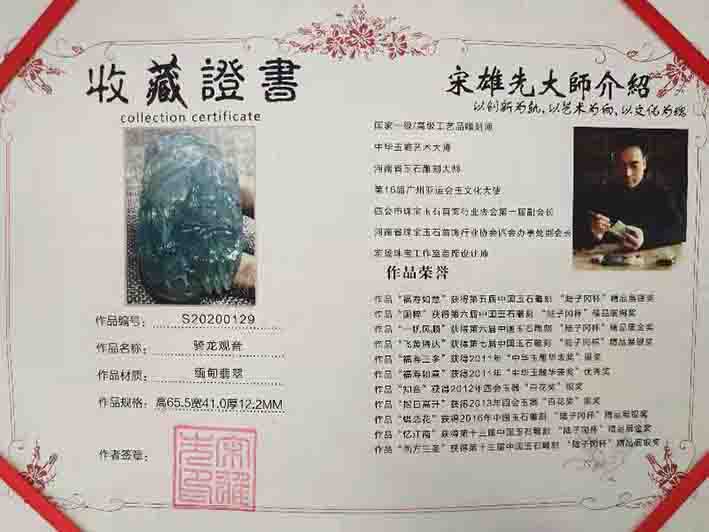 收藏證書
collection certificate
作品编号: S20200129
作品名称: 骑龙观音
作品材质: 缅甸翡翠
作品规格: 高65.5宽41.0厚12.2MM
作者签章:
宋雄先大師介紹
以创新为轨,以艺术为向,以文化为魂
国家一级/高级工艺品雕刻师
中华玉雕艺术大师
河南省玉石雕刻大师
第16届广州亚运会玉文化大使
四会市珠宝玉石首饰行业协会第一届副会长
河南省珠宝玉石首饰行业协会四会办事处副会长
作品荣誉
作品“福寿如意”获得第五届中国玉石雕刻 “陆子冈杯”精品展银奖
作品 获得第六届中国玉石雕刻 “陆子冈杯”精品展铜奖
作品“一帆风顺”获得第六届中国玉石雕刻 “陆子冈杯”精品展金奖
作品“飞黄腾达”获得第七届中国玉石雕刻 “陆子冈杯”精品展银奖
作品“福寿三多”获得2011年“中华玉雕华表奖”银奖
作品“福寿如意”获得2011年“中华玉雕华表奖”优秀奖
作品“知音”获得2012年四会玉器“百花奖”银奖
作品“旭日高升”获得2013年四会玉器“百花奖”铜奖
作品 获得2016年中国玉石雕刻 “陆子冈杯”精品展银奖
作品“忆江南”获得第十三届中国玉石雕刻 “陆子冈杯”精品展金奖
作品“西方三圣”获得第十三届中国玉石雕刻 “陆子冈杯”精品展银奖